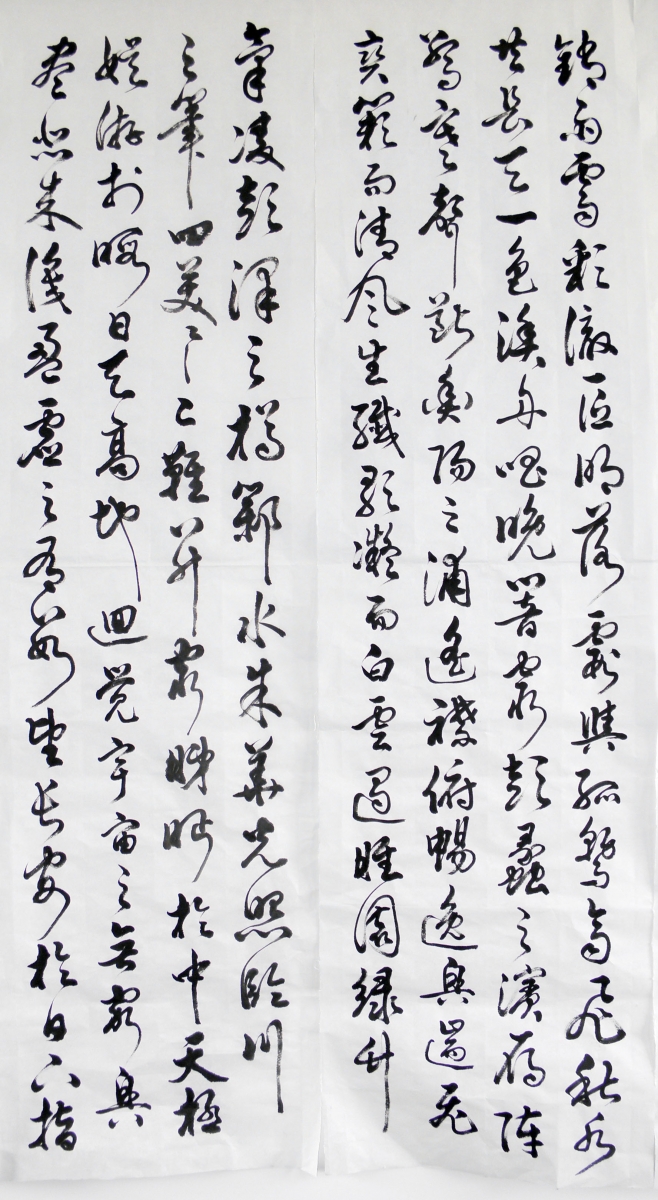 銷雨霽彩徹區明落霞與孤鶩齊飛秋水
共長天一色漁舟唱晚響窮彭蠡之濱雁陣
驚寒聲斷衡陽之浦遙襟俯暢逸興遄飛
爽籟而清風生纖歌凝而白雲遏睢園綠竹
氣凌彭澤之樽鄴水朱華光照臨川
之筆四美具二難并窮睇眄於中天極
娛游於暇日天高地迴觉宇宙之無窮興
盡悲来識盈虛之有數望長安於日下指